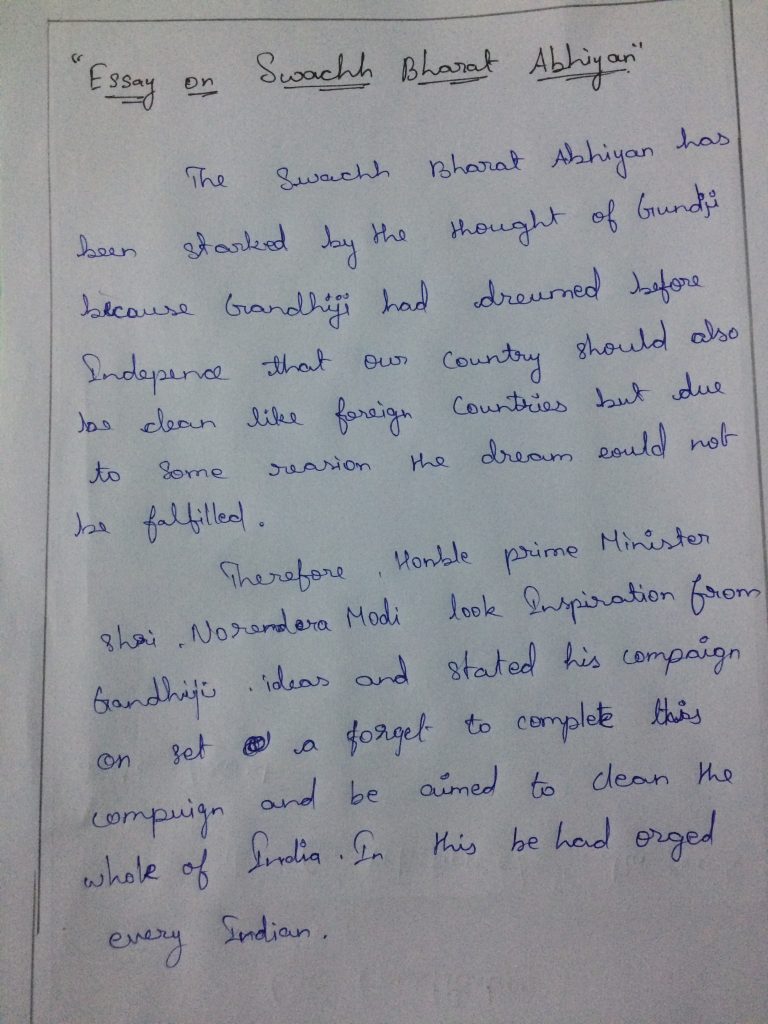 "Essay on Swachh Bharat Abhiyan"
The Swachh Bharat Abhiyan has
been starked by the thought of Gundji
because Grandhiji had dreumed before
Indepence that our country should also
be clean like foreign Countries but due
to Some reasion the dream could not
be falfilled.
Therefore, Honble prime Minister
shri. Norendera Modi look Inspiration from
Grandhiji. ideas and stated his compaign
on set a forget to complete this
compuign and be aimed to clean the
whole of India. In this be had orged
every Indian.